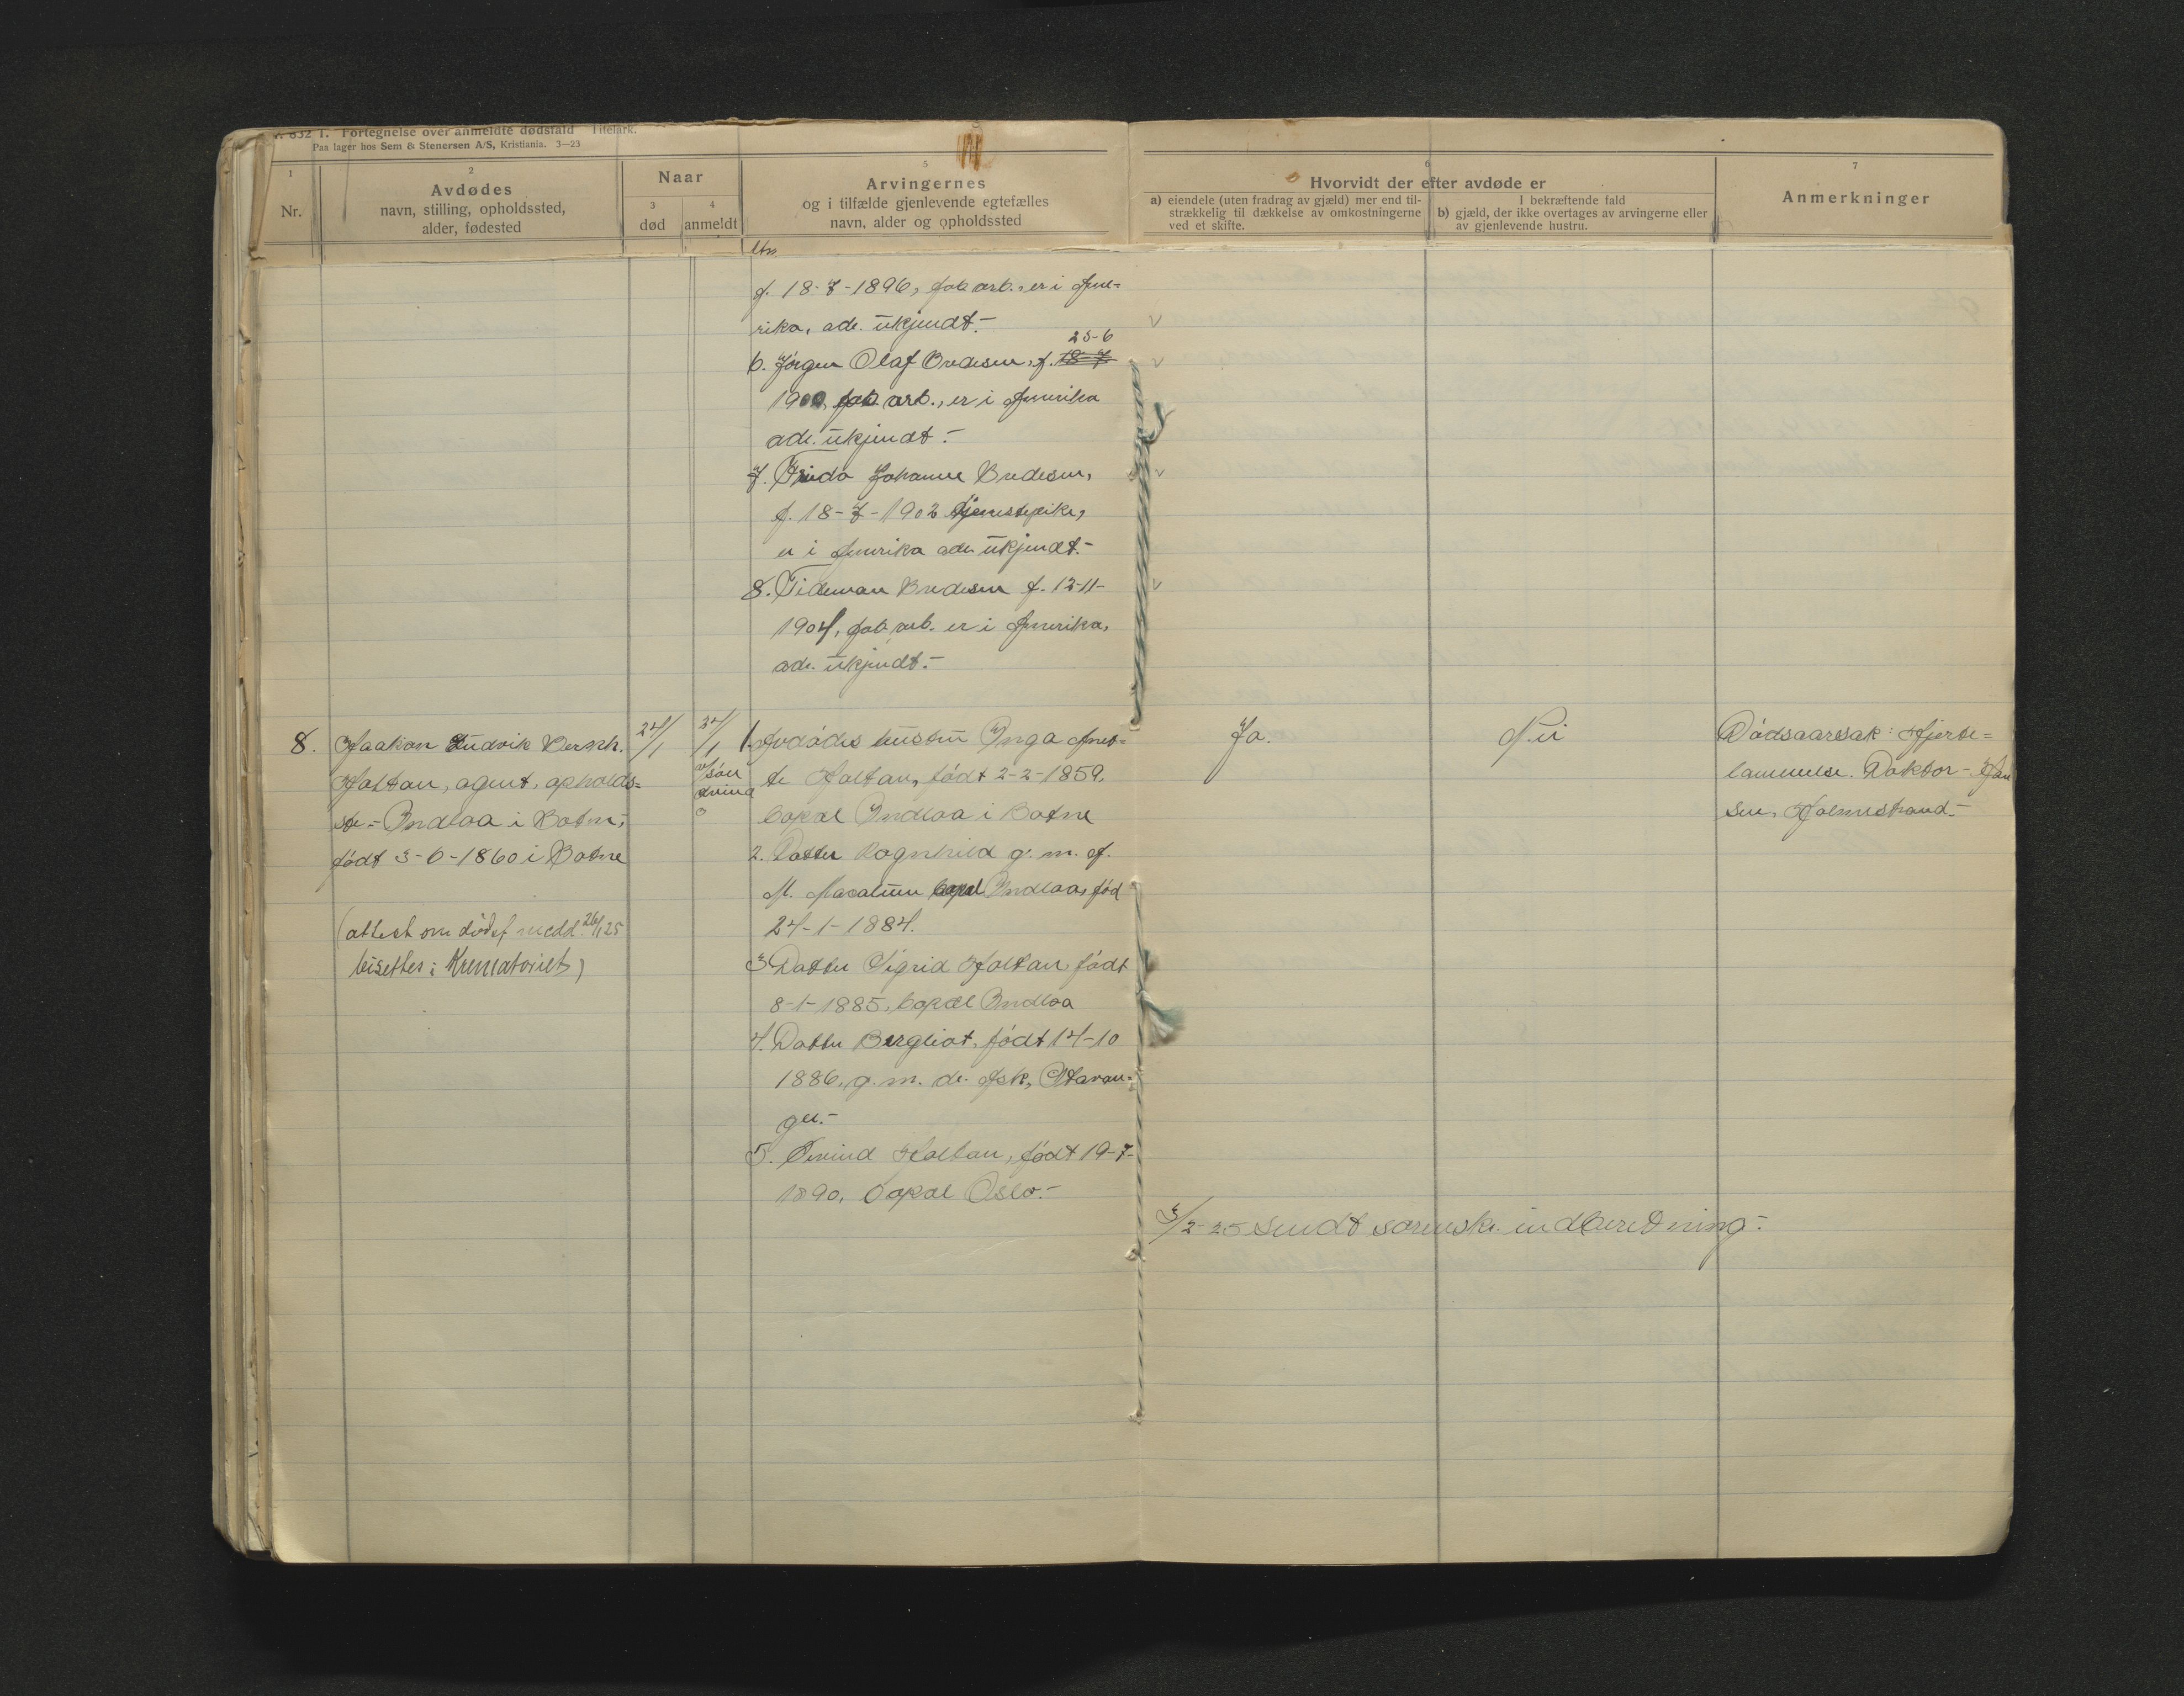 832 1. Fortegnelse over anmeldte dødsfald Titelark.
Paa lager hos Sem & Stenersen A/S, Kristiania. 3—23
1
Nr.
2
Avdødes
navn, stilling, opholdssted,
alder, fødested
Naar
3
død
4
anmeldt
5
Arvingernes
og i tilfælde gjenlevende egtefælles
navn, alder og opholdssted
6
Hvorvidt der efter avdøde er
a) eiendele (uten fradrag av gjæld) mer end til-
strækkelig til dækkelse av omkostningerne
ved et skifte.
I bekræftende fald
b) gjæld, der ikke overtages av arvingerne eller
av gjenlevende hustru.
7
Anmerkninger
f. 18-7-1896, fab arb., er i Ame=
rika, adr. ukjendt.-
25-6
6. Jørgen Olaf Bredesen, f. 18-7
1900, fab arb., er i Amerika
adr. ukjendt.-
7. Frida Johanne Bredesen,
f. 18-7-1902 tjenestepike,
er i Amerika adr. ukjendt.-
8. Tideman Bredesen f. 12-11-
1904, fab arb. er i Amerika,
adr. ukjendt.-
8.
Haakon Ludvik Bernh.
Holtan, agent, opholds=
ste.- Indlaa i Botne,
født 3-6-1860 i Botne
(attest om dødsf medd. 26/1 25
bisettes i Krematoriet)
24/1
24/1
av søn
Øivind
1. Avdødes hustru Inga Anet=
te Holtan, født 2-2-1859,
bopæl Indlaa i Botne
2. Datter Ragnhild g. m. A.
M. bopæl Indlaa, fød
24-1-1884.
3 Datter Sigrid Holtan født
8-1-1885, bopæl Indlaa
4. Datter Bergliot, født 14-10
1886, g. m. dr. Ask, Stavan=
ger.-
5. Øivind Holtan, født 19-7-
1890, bopæl Oslo.-
Ja.
Nei
Dødsaarsak: Hjerte=
lammelse. Doktor - Han
sen, Holmestrand.-
3/2-25 sendt sorensk. indberetning.-